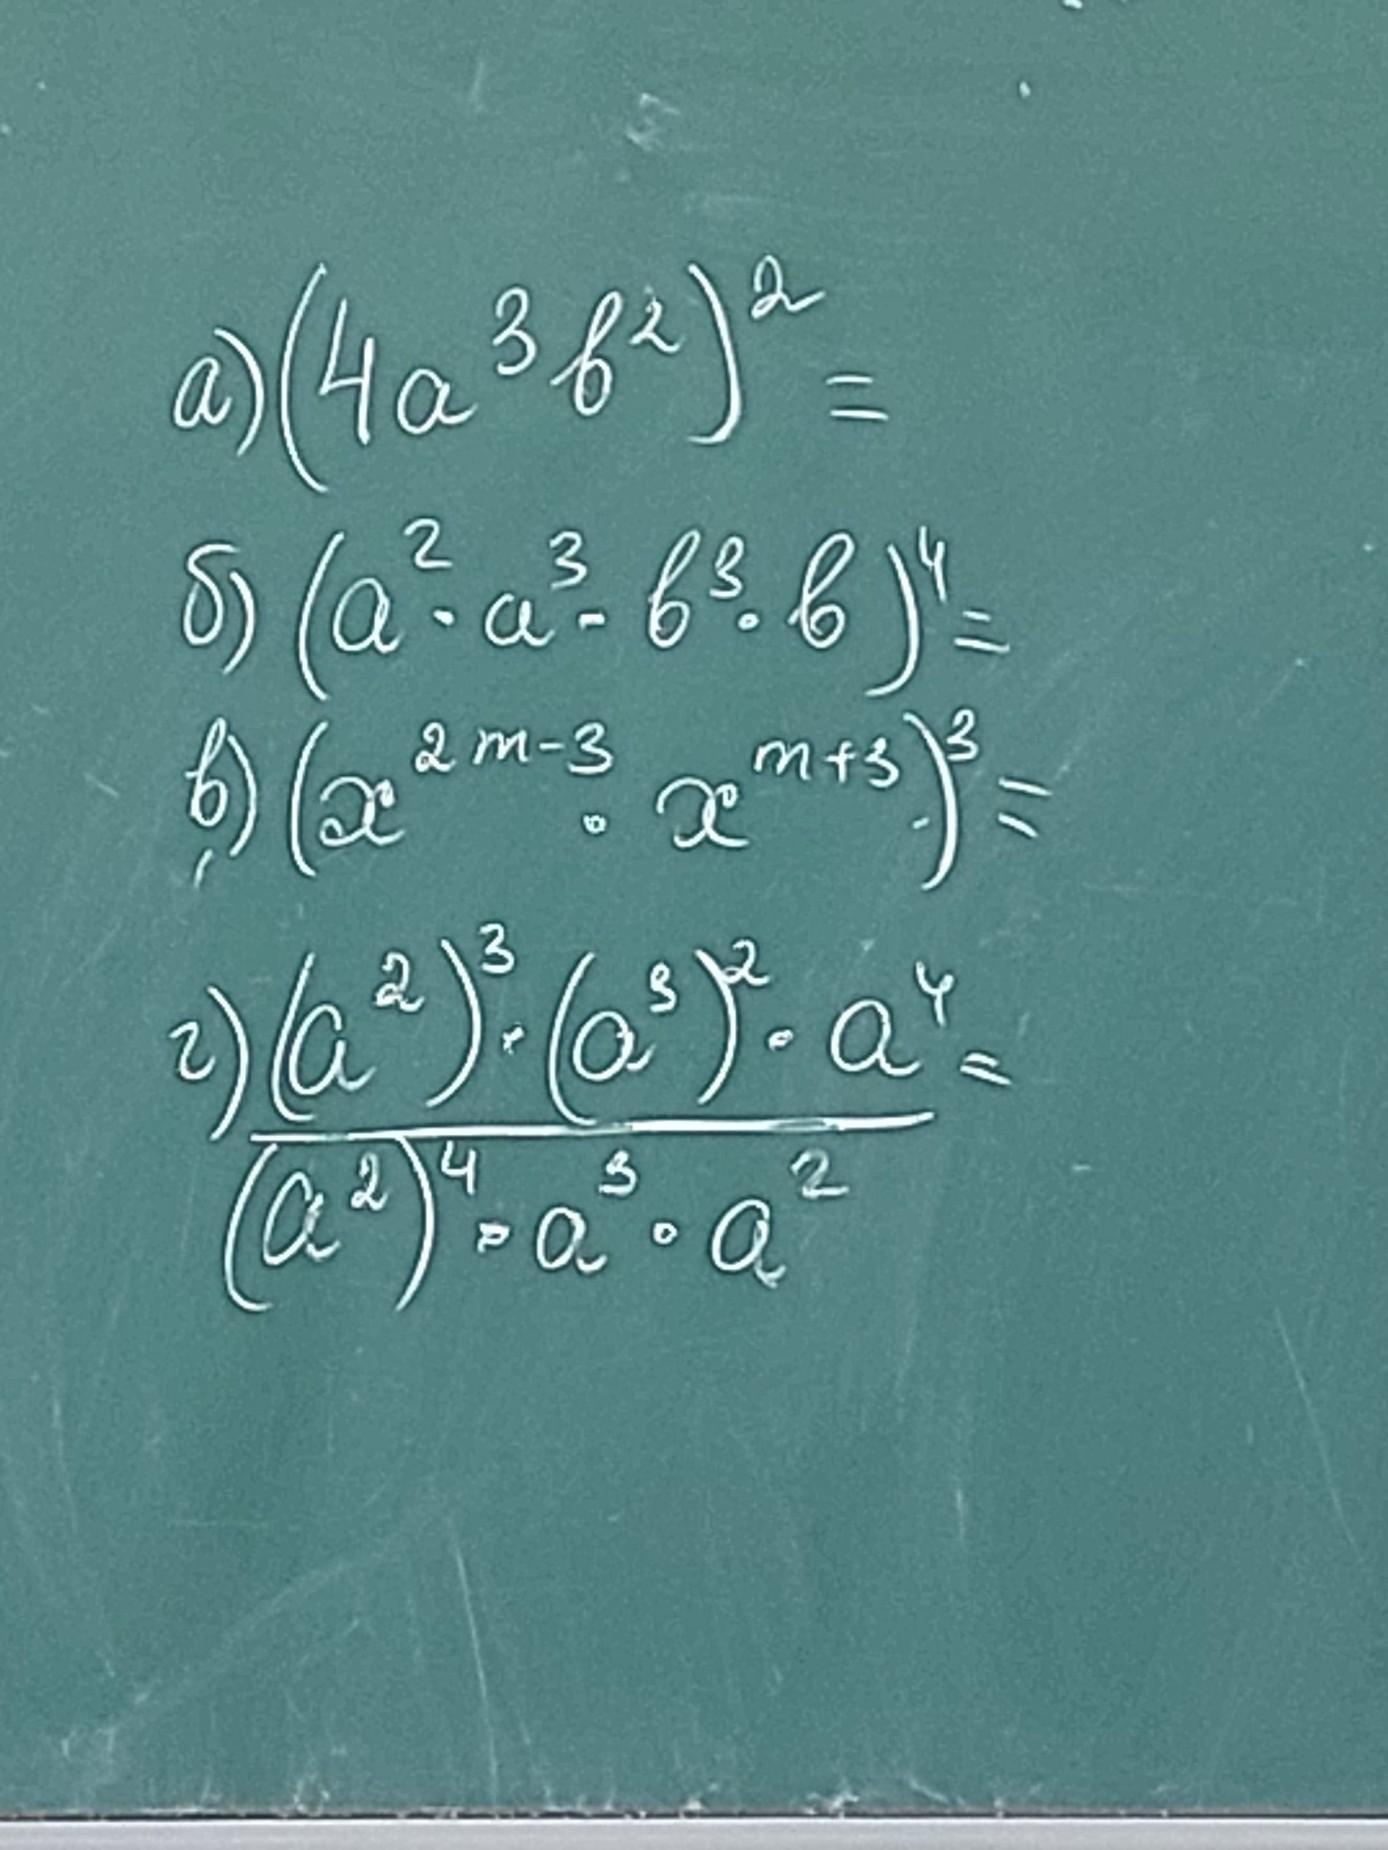 а) (4a³b²)² =
б) (a² · a³ · b³ · b)⁴ =
в) (x²ᵐ⁻³ · xᵐ⁺³)³ =
г) (a²)³ · (a³)² · a⁴ =
(a²)⁴ · a³ · a²